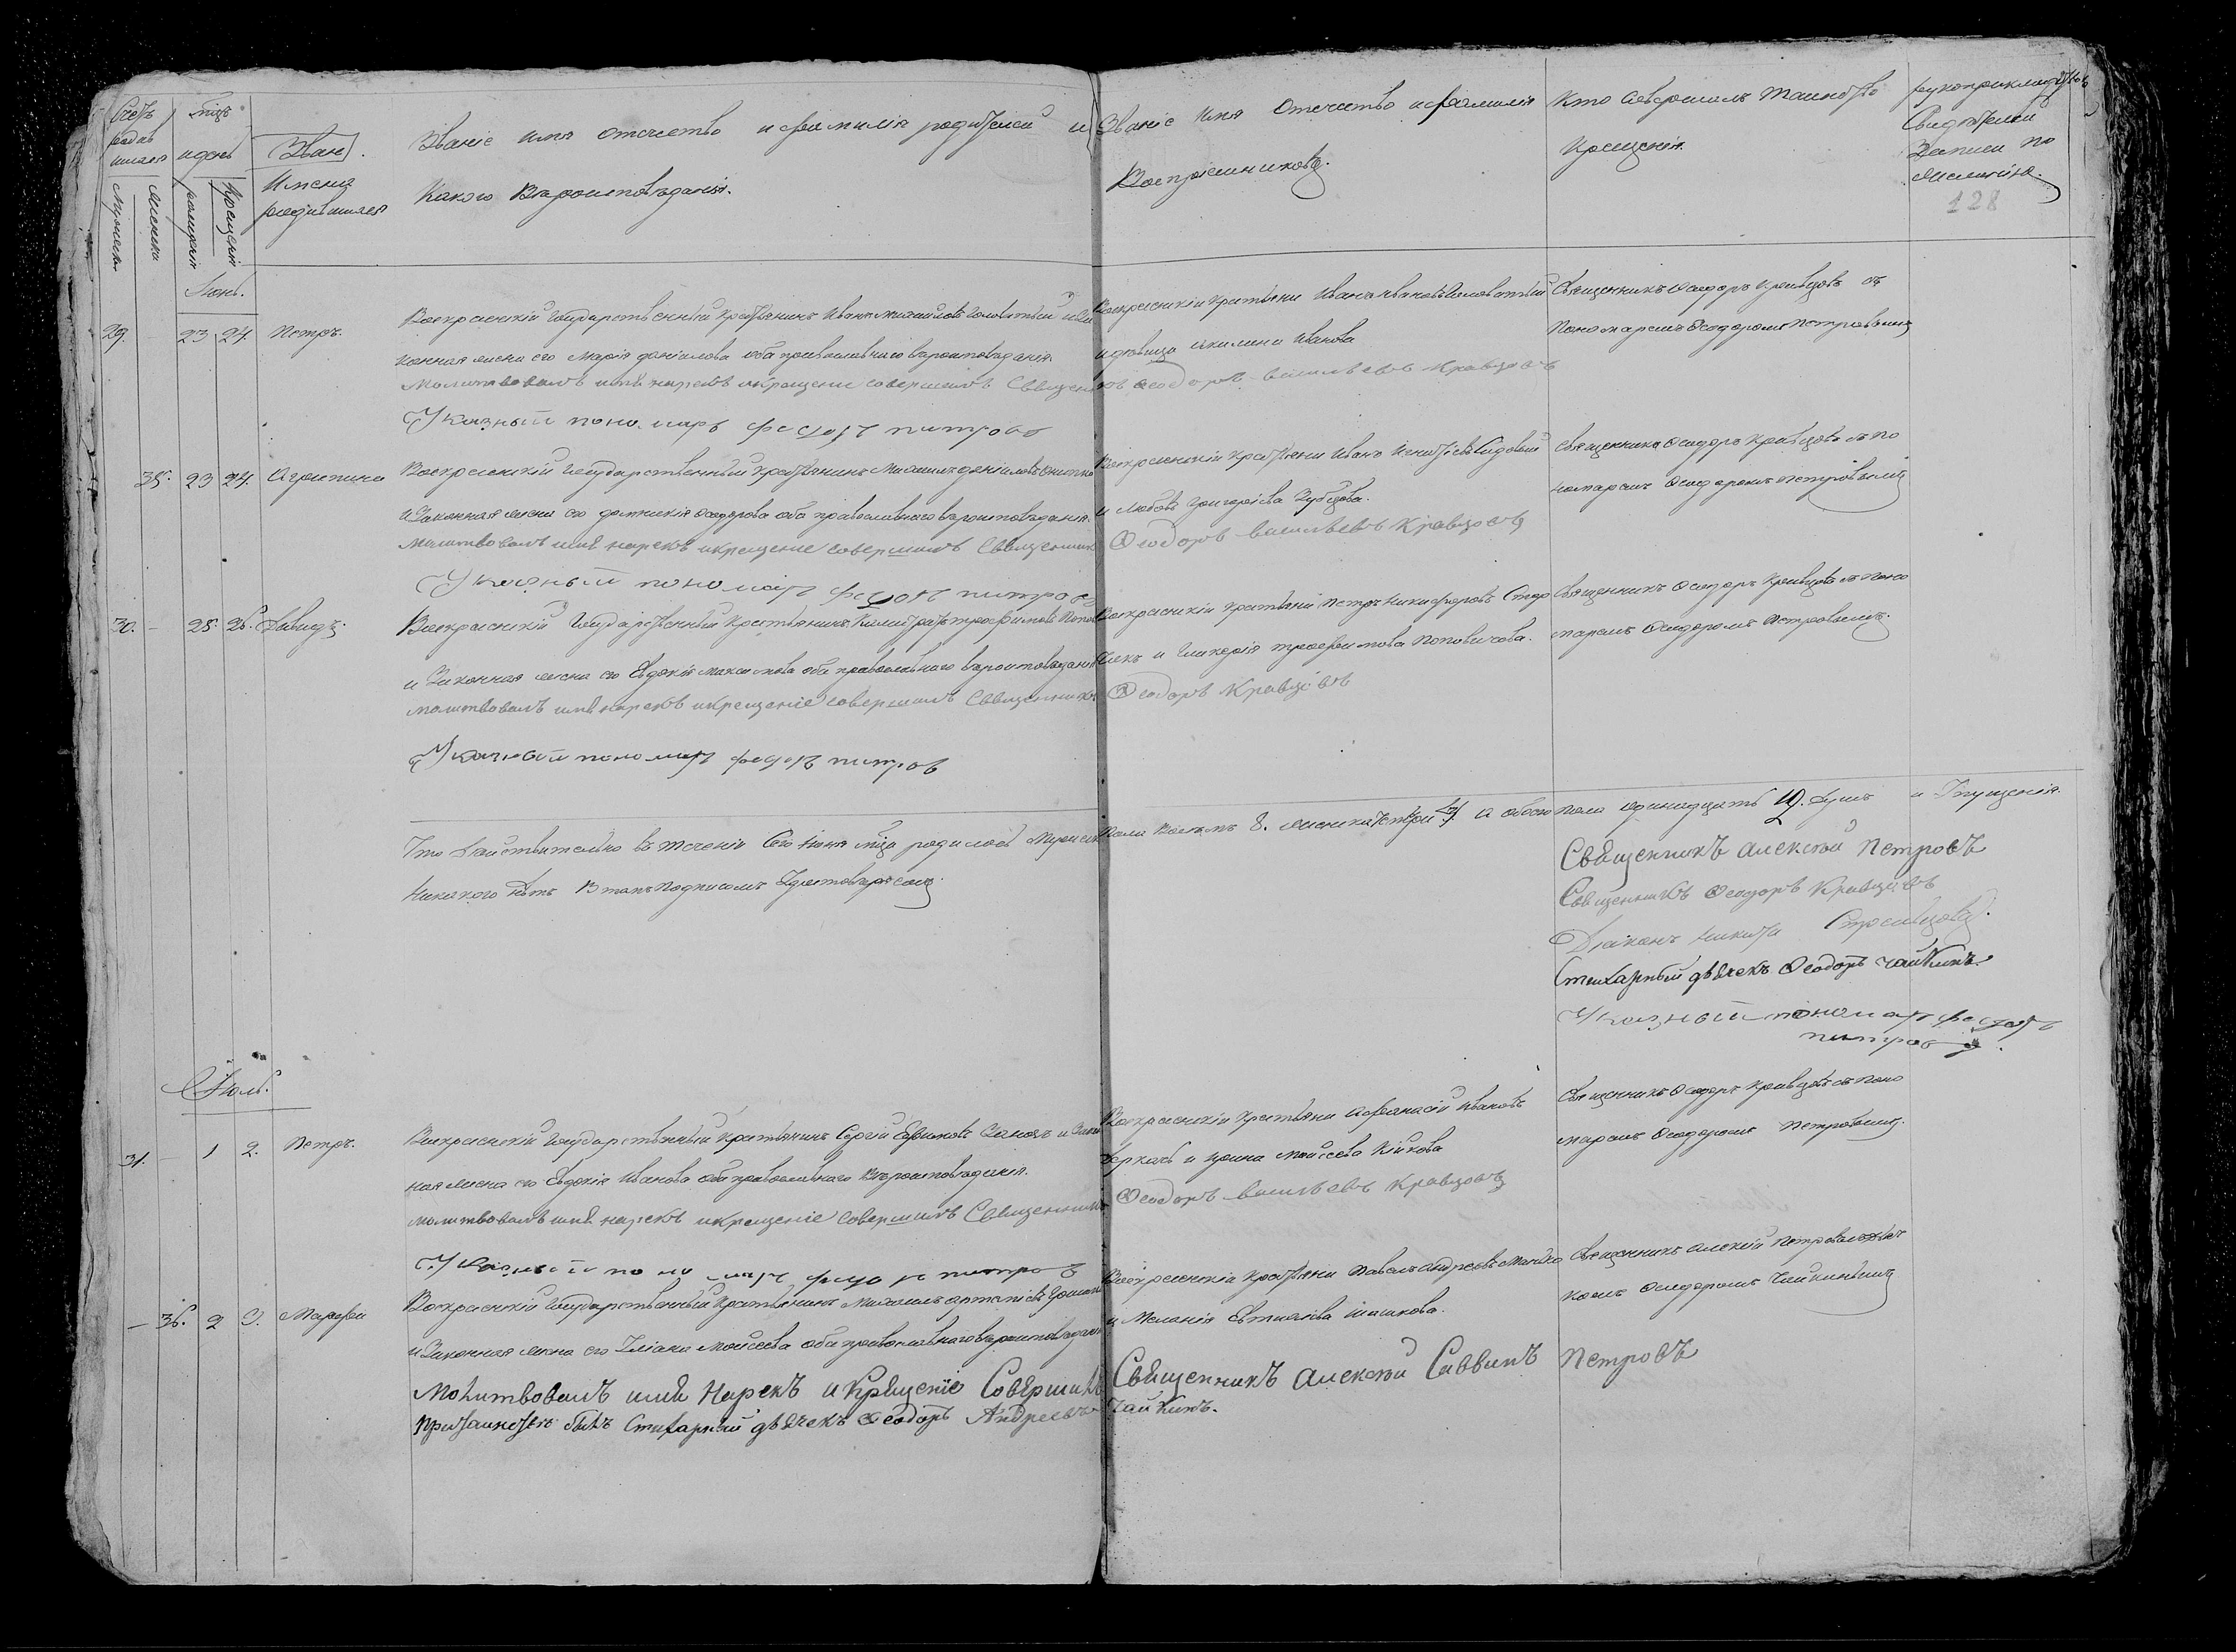 Счетъ родившихся
Мужеска
Женска
Мѣцъ и день
рожденія
Крещенія
Имена родившихся
Званіе имя отчество и фамилія родителей и
Какого Вѣроисповѣданія.
Званіе Имя Отечество и фамилія
Воспріемниковъ.
Кто Совершалъ Таинство
Крещенія.
рукоприкладство
Свидѣтелей
Записи по
желанію.
128
Іюнь.
29. 23 24. Петръ.
Воскресенскій Государственный Крестьянинъ Иванъ Михайловъ Головатый и За
конная жена его Марія Даніилова оба православнаго вѣроисповѣданія.
Молитвовалъ имя нарекъ и крещение совершилъ Священникъ Ѳеодоръ Васильевъ Кравцовъ
Указный пономарь федоръ питровъ
Воскресенскіи Крестьяни Иванъ Ивановъ Головатый
и дѣвица Акилина Иванова
Священникъ Ѳеодоръ Кравцовъ съ
Пономаремъ Ѳеодоромъ Петровымъ
35. 23 24. Агрипина
Воскресенскій Государственный Крестьянинъ Михаилъ Даніиловъ
и Законная жена его Ѳеодорова оба православнаго вѣроисповѣданія.
Молитвовалъ имя нарекъ и крещение совершилъ Священникъ Ѳеодоръ Васильевъ Кравцовъ
Указный пономарь федоръ питровъ
Воскресенскіи Крестьяни Иванъ Седовый
и Любовъ Григоріева Зубцова.
Священникъ Ѳеодоръ Кравцовъ съ по
номаремъ Ѳеодоромъ Петровымъ
30. 25. 26. Давидъ.
Воскресенскій Государственный Крестьянинъ Калистратъ Трофимовъ Попов
и Законная жена его Евдокія Максимова оба православнаго вѣроисповѣданія
Молитвовалъ имя нарекъ и крещеніе совершилъ Священникъ Ѳеодоръ Кравцовъ
Указный пономарь федоръ питров
Воскресенскіи Крестьяни Петръ Никифоровъ
и Гликерія Трофимова Поповичова.
Священникъ Ѳеодоръ Кравцовъ съ поно
маремъ Ѳеодоромъ Петровымъ.
Что дѣйствительно въ теченіи Сего Іюня мѣца родилось Мужеска Пола Восемь 8. женска и обоего Пола Душъ и Упущенія
Никакого нѣтъ Втомъ Подписомъ Удостовѣряемъ.
Священникъ Алексѣй Петровъ
Священникъ Ѳеодоръ Кравцовъ
Діаконъ Никита
Стихарный дьячекъ Ѳеодоръ Чайкинъ.
Указный пономарь федоръ
питровъ.
Іюль.
31. 1 2. Петръ.
Воскресенскій Государственный Крестьянинъ Сергій Ефимовъ и Закон
ная жена его Евдокія Иванова оба православнаго Вѣроисповѣданія.
Молитвовалъ имя нарекъ и крещеніе совершилъ Священникъ Ѳеодоръ Васильевъ Кравцовъ
Указный пономарь федоръ питровъ
Воскресенскіи Крестьяни Афанасій Ивановъ
и Ирина Моисеева Кійкова
Священникъ Ѳеодоръ Кравцовъ съ поно
маремъ Ѳеодоромъ Петровымъ.
36. 2 3. Марфа
Воскресенскій Государственный Крестьянинъ Михаилъ
и Законная жена его Уліана Моисеева оба православнаго вѣроисповѣданія
Молитвовалъ имя Нарекъ и Крещеніе Совершилъ Священникъ Алексѣй Саввинъ Петровъ
При Таинствѣ былъ Стихарный дьячекъ Ѳеодоръ Андреевъ Чайкинъ.
Воскресенскіи Крестьяни Павелъ Андреевъ
и Меланія Евтихіева Шашкова.
Священникъ Алексій Петровъ
комъ Ѳеодоромъ Чайкинымъ